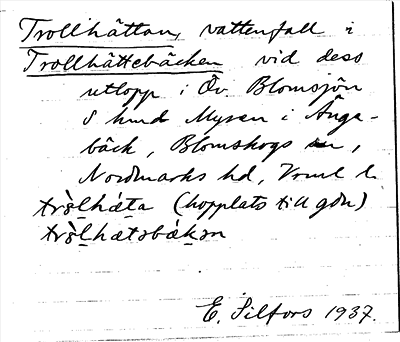 Trollhättan, vattenfall i
Trollhättebäcken vid dess
utlopp i Öv. Blomsjön
S hmd Myren i Ånge-
bäck, Blomskogs sn,
Nordmarks hd, Vrml l.
tròl̥hǽta (hopplats till gdn)
tròl̥hætəbækən
E. Silfors 1937.